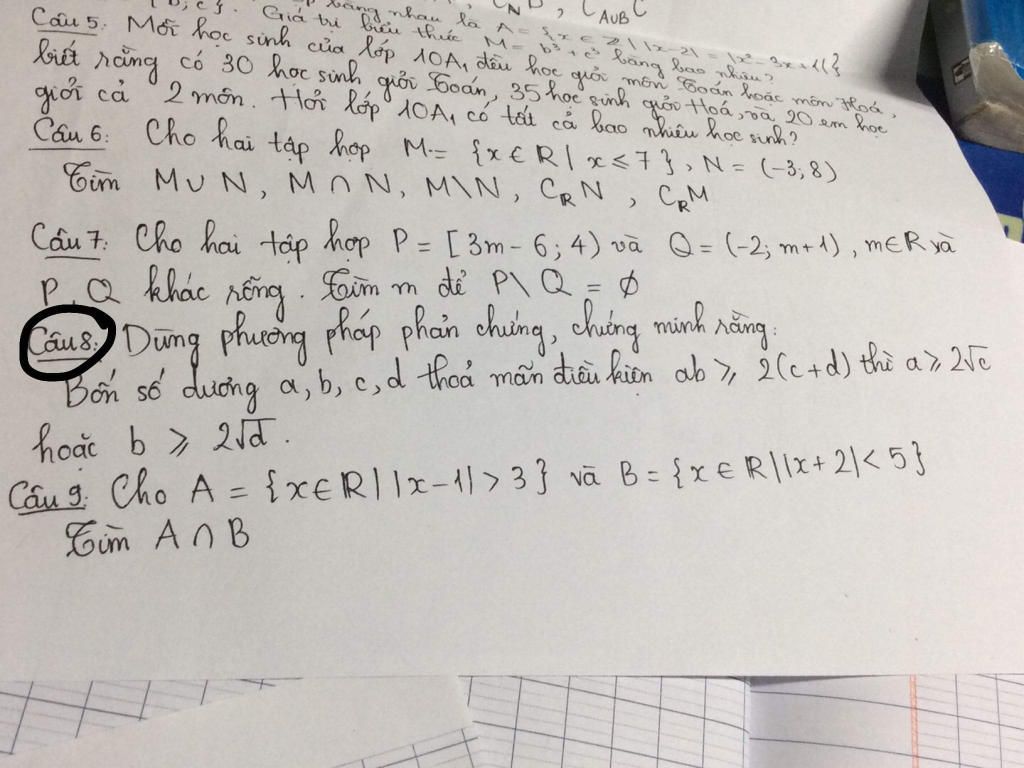 b; c}. bằng nhau là A = {x ∈ Z | |x-2| = |x²-3x+1|}
Giá trị biểu thức M = b³ + c³ bằng bao nhiêu?
Câu 5. Mỗi học sinh của lớp 10A₁ đều học giỏi môn Toán hoặc môn Hoá,
biết rằng có 30 học sinh giỏi Toán, 35 học sinh giỏi Hoá, và 20 em học
giỏi cả 2 môn. Hỏi lớp 10A₁ có tất cả bao nhiêu học sinh?
Câu 6: Cho hai tập hợp M = {x ∈ R | x ≤ 7}, N = (-3; 8)
Tìm M ∪ N, M ∩ N, M\N, C_R N, C_R M
Câu 7: Cho hai tập hợp P = [3m-6; 4) và Q = (-2; m+1), m ∈ R và
P, Q khác rỗng. Tìm m để P\Q = ∅
Câu 8: Dùng phương pháp phản chứng, chứng minh rằng:
Bốn số dương a, b, c, d thoả mãn điều kiện ab ≥ 2(c+d) thì a ≥ 2√c
hoặc b ≥ 2√d.
Câu 9: Cho A = {x ∈ R | |x-1| > 3} và B = {x ∈ R | |x+2| < 5}
Tìm A ∩ B